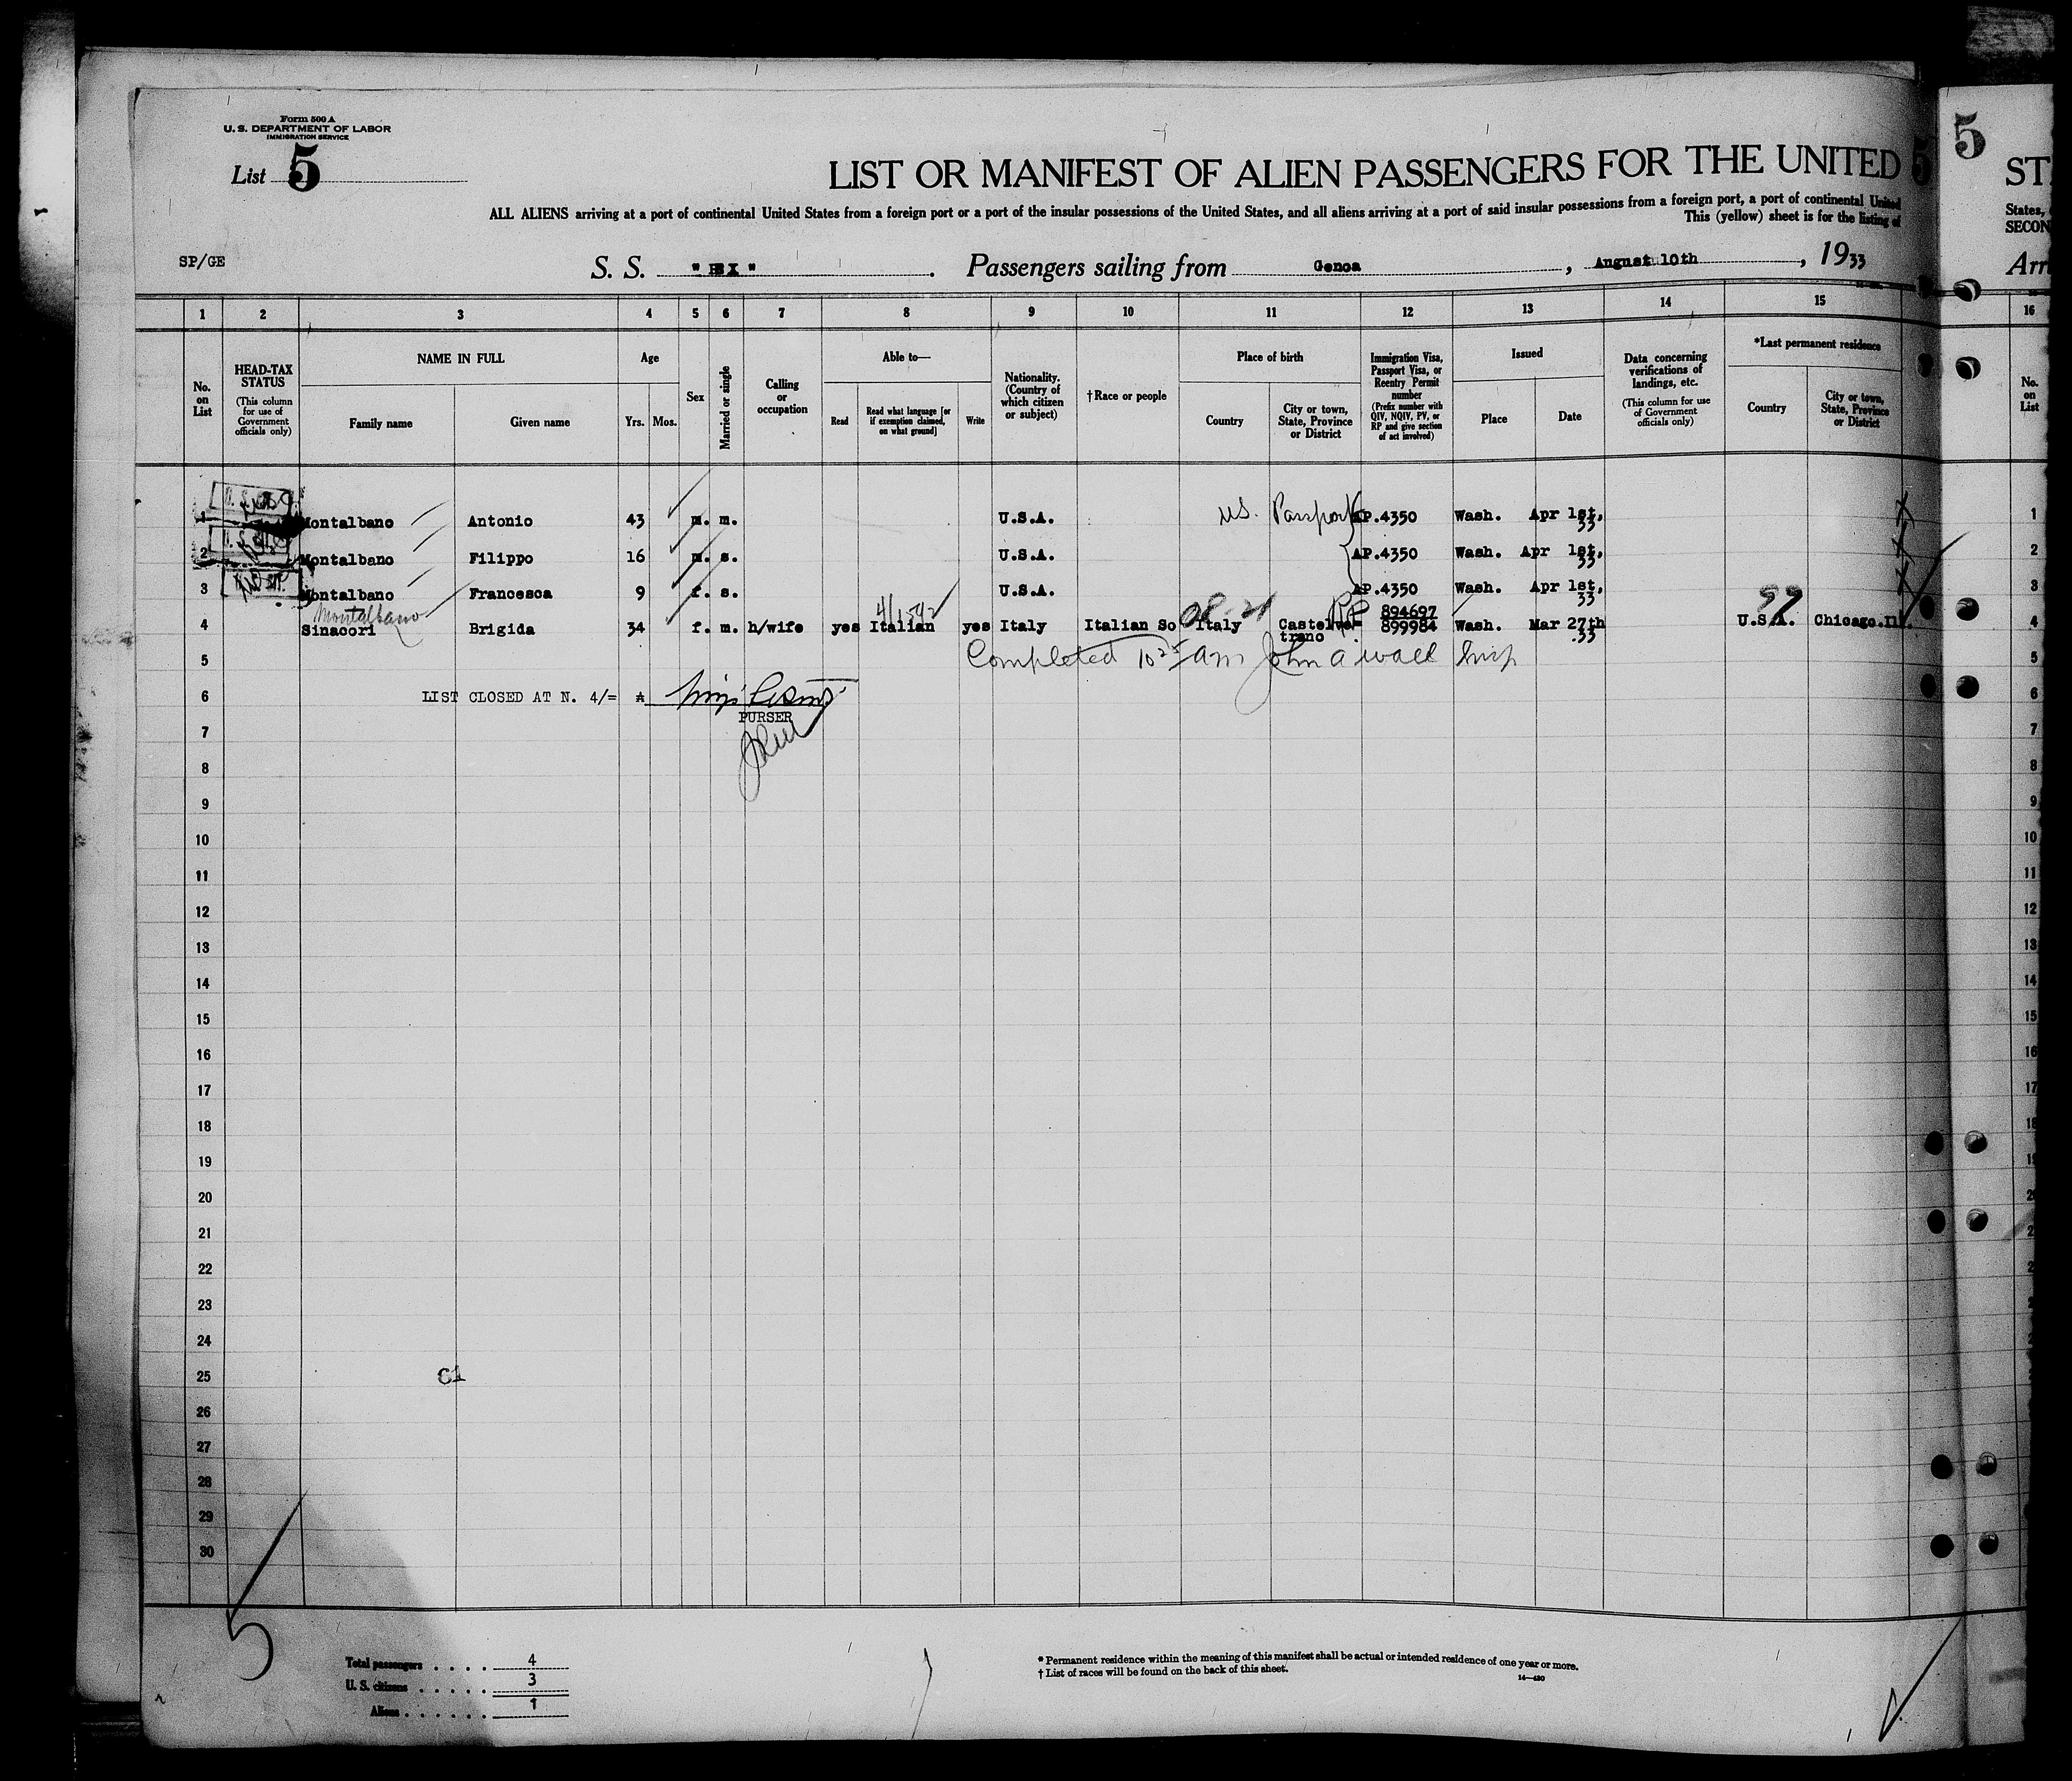 Form 500 A
U. S. DEPARTMENT OF LABOR
IMMIGRATION SERVICE
List 5
5
5
LIST OR MANIFEST OF ALIEN PASSENGERS FOR THE UNITED
ST
ALL ALIENS arriving at a port of continental United States from a foreign port or a port of the insular possessions of the United States, and all aliens arriving at a port of said insular possessions from a foreign port, a port of continental United
States,
This (yellow) sheet is for the listing of
SECON
SP/GE
S. S. " REX " . Passengers sailing from Genoa , August 10th , 1933
Arri
1 2 3 4 5 6 7 8 9 10 11 12 13 14 15 16
No. on List
HEAD-TAX STATUS
(This column for use of Government officials only)
NAME IN FULL
Family name
Given name
Age
Yrs. Mos.
Sex
Married or single
Calling or occupation
Able to—
Read
Read what language [or if exemption claimed, on what ground]
Write
Nationality. (Country of which citizen or subject)
†Race or people
Place of birth
Country
City or town, State, Province or District
Immigration Visa, Passport Visa, or Reentry Permit number
(Prefix number with QIV, NQIV, PV, or RP and give section of act involved)
Issued
Place
Date
Data concerning verifications of landings, etc.
(This column for use of Government officials only)
*Last permanent residence
Country
City or town, State, Province or District
No. on List
1 Montalbano Antonio 43 m. m. U.S.A. U.S. Passport P.4350 Wash. Apr 1st, 33 1
2 Montalbano Filippo 16 m. s. U.S.A. P.4350 Wash. Apr 1st, 33 2
3 Montalbano Francesca 9 f. s. U.S.A. P.4350 Wash. Apr 1st, 33 3
Montalbano RP 894697
4 Sinacori Brigida 34 f. m. h/wife yes Italian yes Italy Italian So Italy Castelve= trano 899984 Wash. Mar 27th 33 U.S.A. Chicago.Ill. 4
5 Completed 10 25 am John A Wall Insp 5
6 LIST CLOSED AT N. 4/= 6
PURSER
7 7
8 8
9 9
10 10
11 11
12 12
13 13
14 14
15 15
16 16
17 17
18 18
19
20
21
22
23
24
25
26
27
28
29
30
5
Total passengers . . . . 4
U. S. citizens . . . . . 3
Aliens . . . . . . 1
* Permanent residence within the meaning of this manifest shall be actual or intended residence of one year or more.
† List of races will be found on the back of this sheet.
14—430